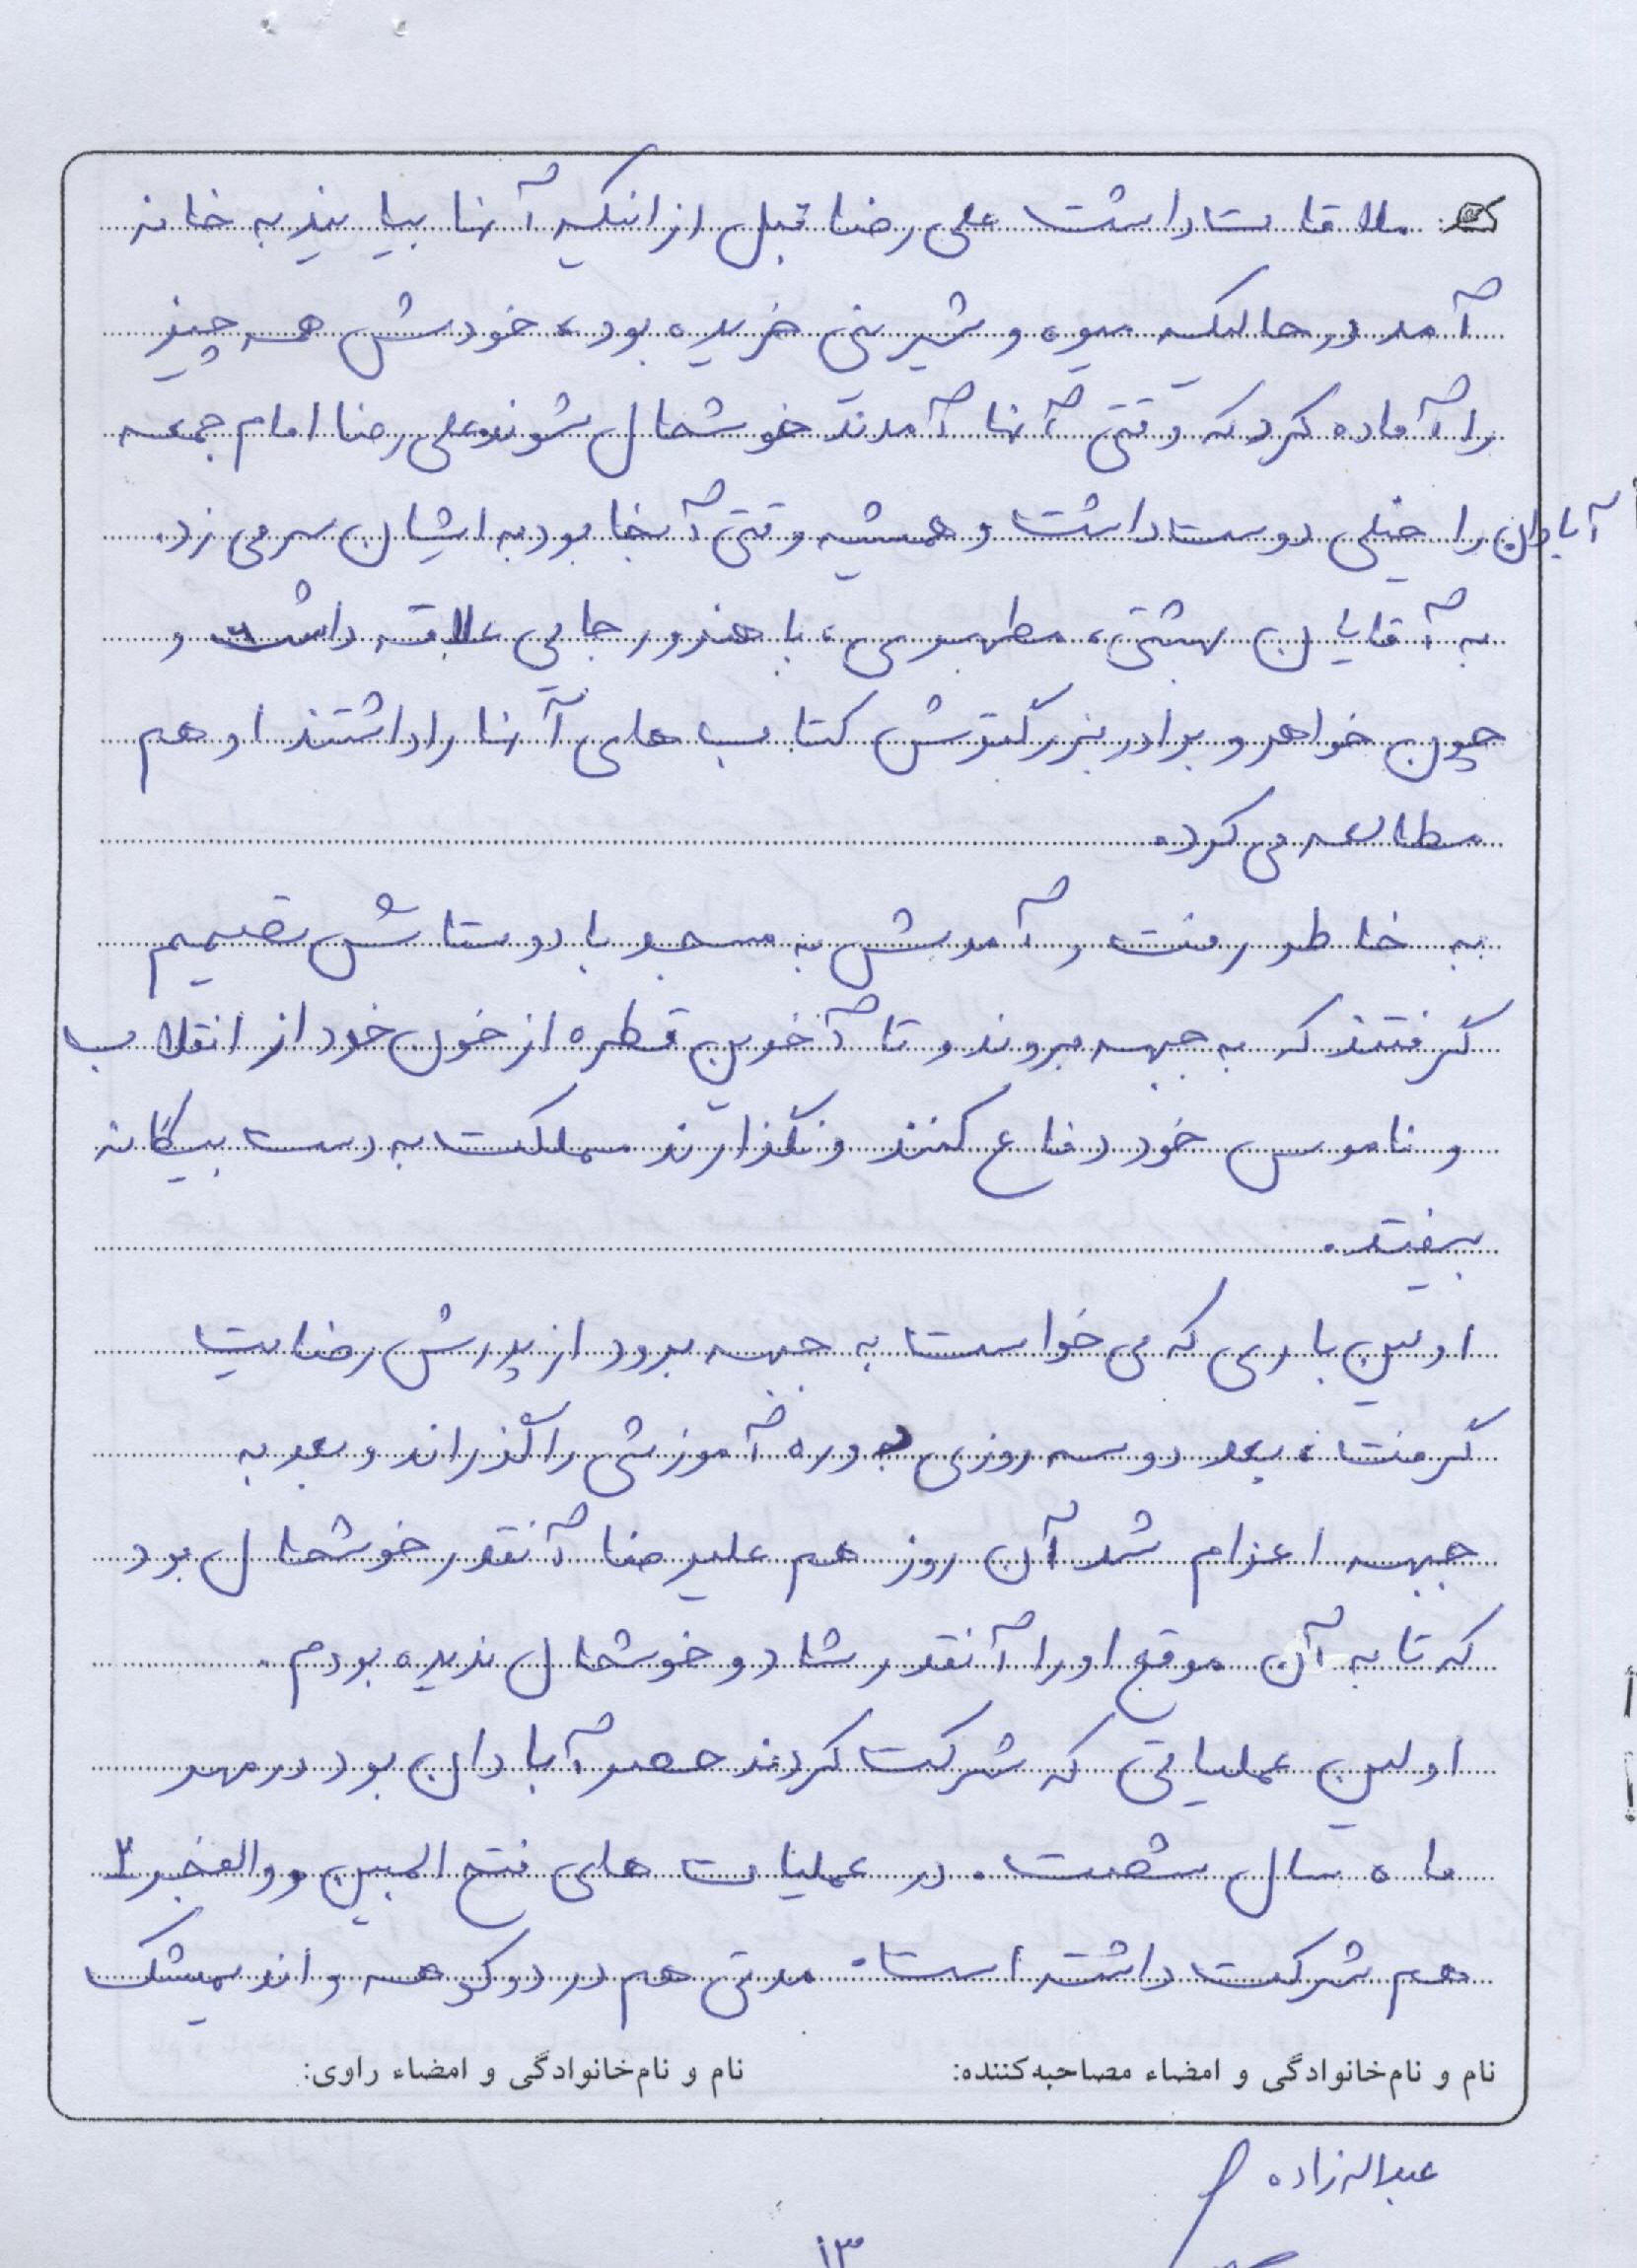 ملاقات داشت علی رضا قبل از اینکه آنها بیایند به خانه
آمد در حالیکه میوه و شیرینی خریده بود، خودش همه چیز
را آماده کرد که وقتی آنها آمدند خوشحال شوند علی رضا امام جمعه
آبادان را خیلی دوست داشت و همیشه وقتی آنجا بود به ایشان سر می زد.
به آقایان بهشتی، مطهری، باهنر و رجایی علاقه داشت و
چون خواهر و برادر بزرگترش کتاب های آنها را داشتند او هم
مطالعه می کرد.
به خاطر رفت و آمدش به مسجد با دوستاش تصمیم
گرفتند که به جبهه بروند و تا آخرین قطره از خون خود از انقلاب
و ناموس خود دفاع کنند و نگذارند مملکت به دست بیگانه
بیفتد.
اولین باری که می خواست به جبهه برود از پدرش رضایت
گرفت، بعد دو سه روزی دوره آموزشی را گذراند و بعد به
جبهه اعزام شد آن روز هم علیرضا آنقدر خوشحال بود
که تا به آن موقع او را آنقدر شاد و خوشحال ندیده بودم.
اولین عملیاتی که شرکت کردند حصر آبادان بود در مهر
ماه سال شصت. در عملیات های فتح المبین و والفجر ۲
هم شرکت داشته است. مدتی هم در دوکوهه و اندیمشک
نام و نام‌خانوادگی و امضاء مصاحبه‌کننده: نام و نام‌خانوادگی و امضاء راوی:
عبداله زاده
۱۳